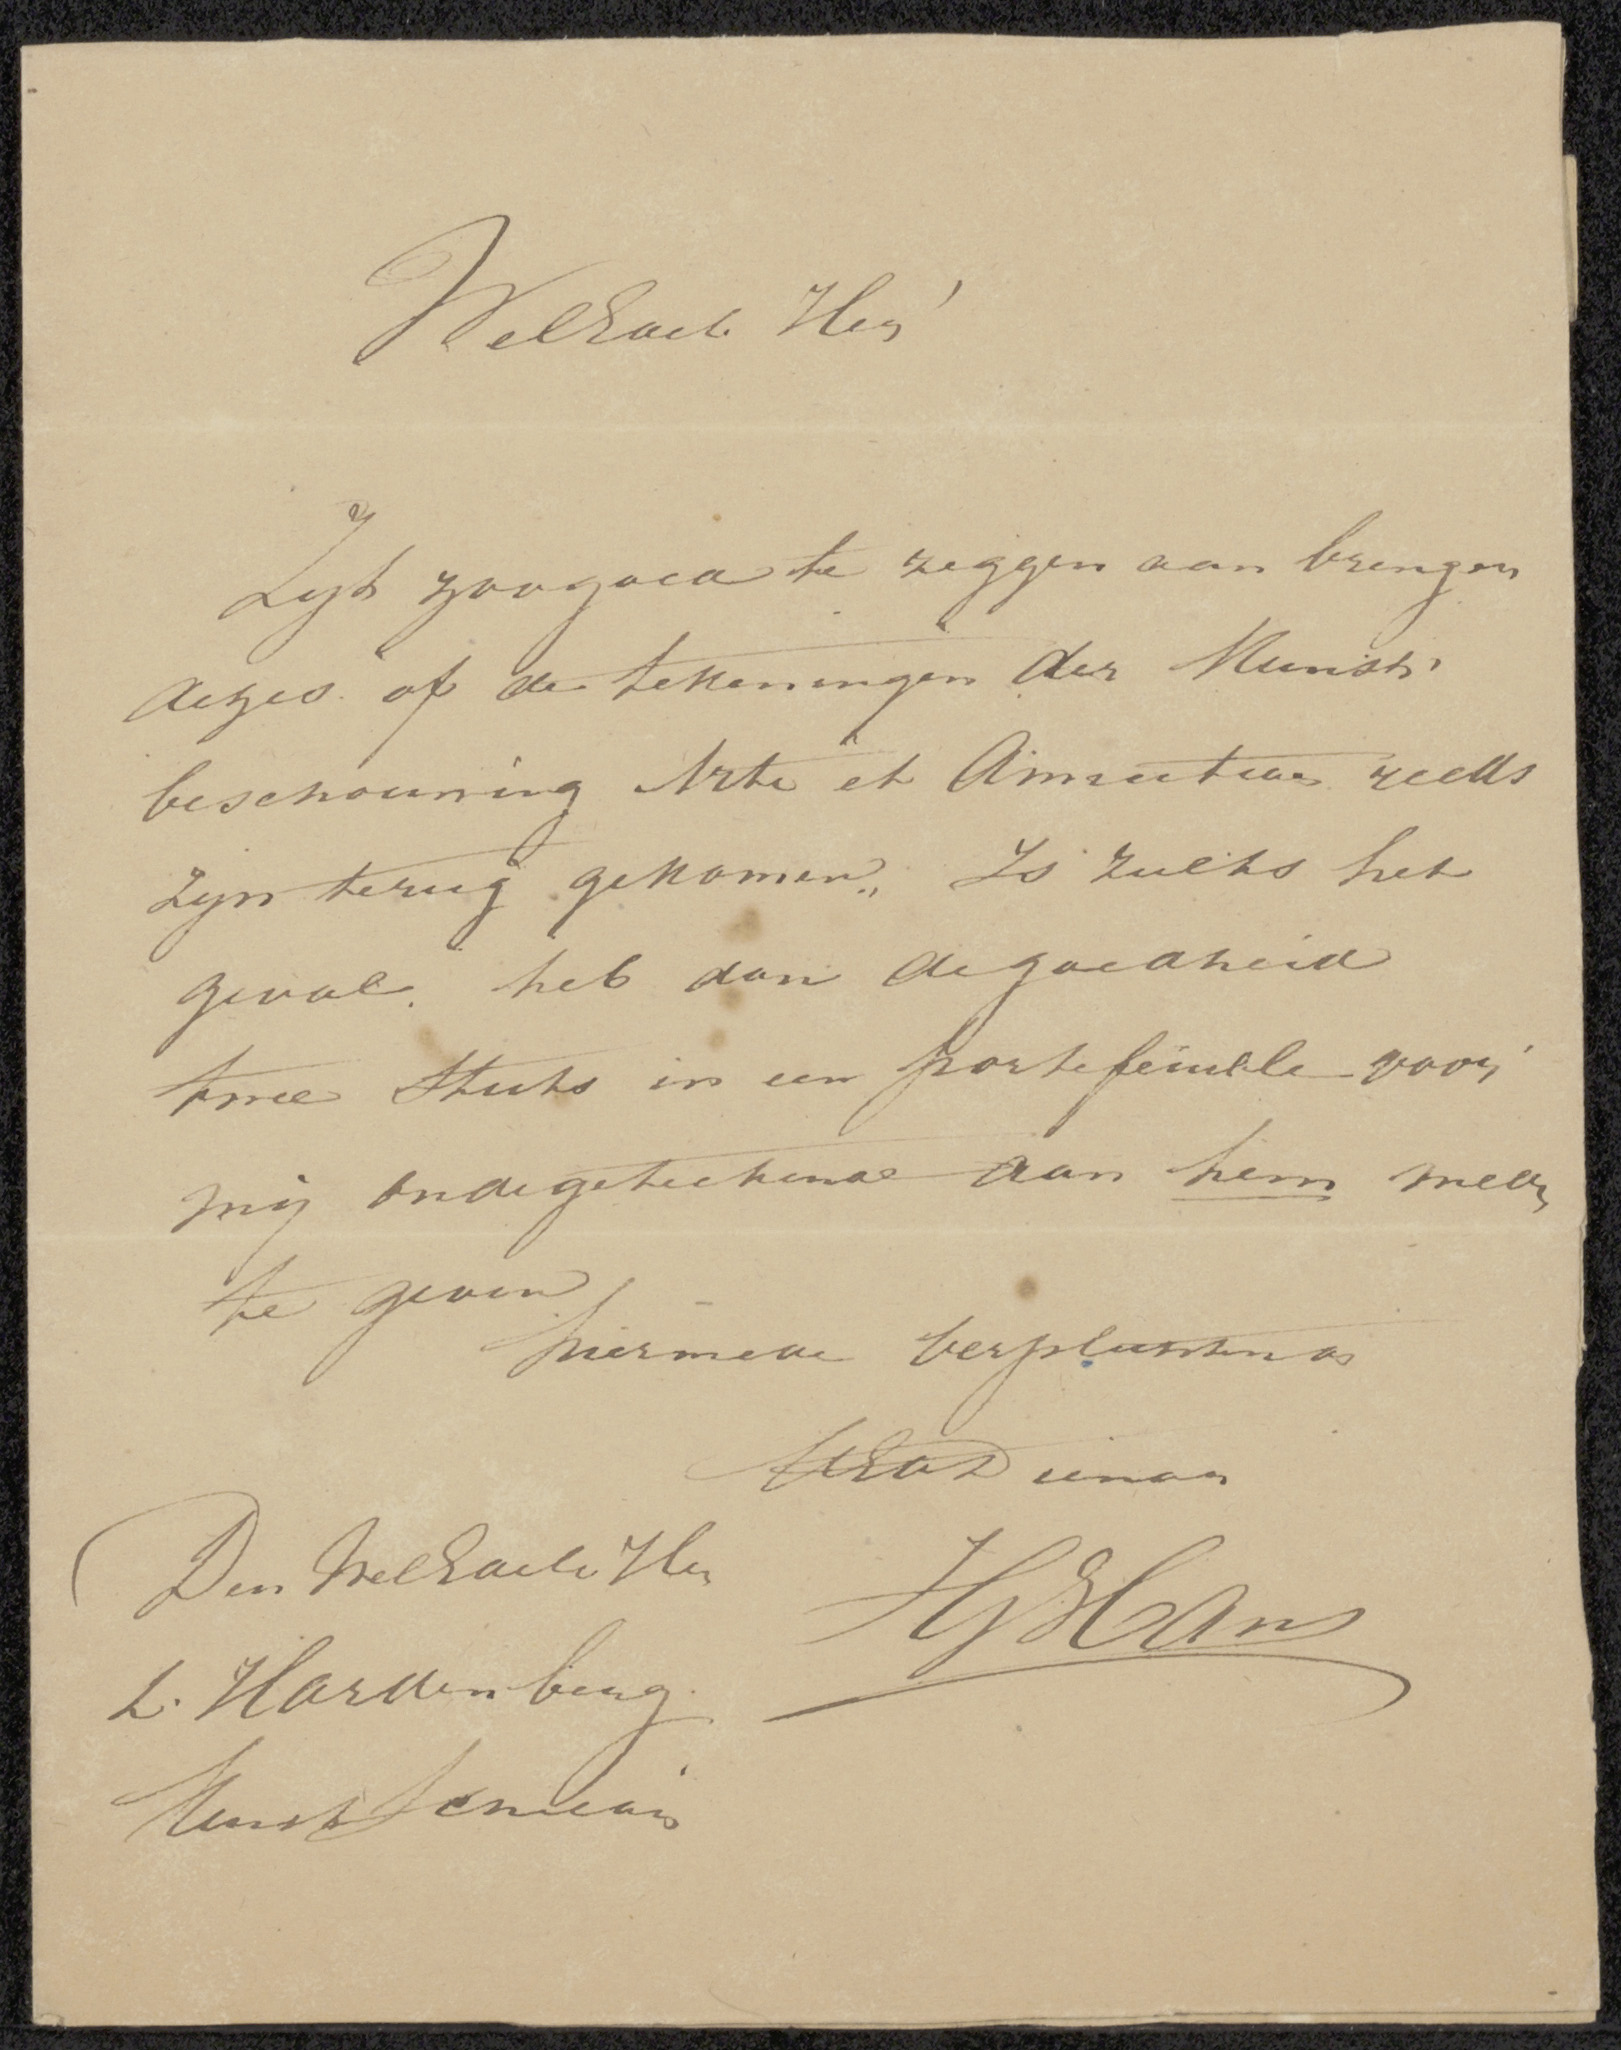 WelEdele Heer
Zijt zoo goed te zeggen aan brenger
dezes of de tekeningen der Kunst
beschouwing Arte et Amicitiae reeds
zijn terug gekomen. Is zulks het
geval. heb dan de goedheid
twee stuks in een portefeuille voor
mij ondergetekende aan hem meê
te geven
hiermede verplichtend
UEd Dienaar
Den WelEdele Heer
L. Hardenberg
Kunstschilder